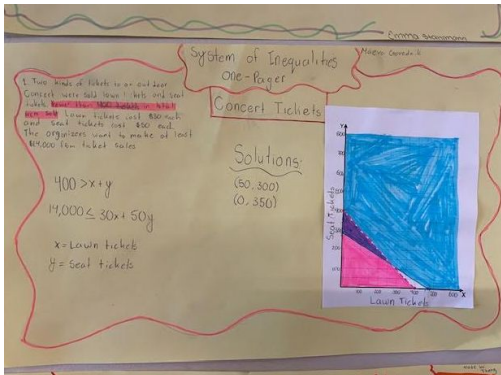 Emma
System of Inequalities
One-Pager
Concert Tickets
1. Two kinds of tickets to an outdoor
Concert were sold lawn tickets and seat
tickets fewer than 400 tickets in total
were sold Lawn tickets cost $30 each
and seat tickets cost $50 each
The organizers want to make at least
$14,000 from ticket sales
Solutions:
(50,300)
(0,350)
400 > x+y
14,000 ≤ 30x + 50y
x = Lawn tickets
y = Seat tickets
Y
Seat Tickets
X
Lawn Tickets